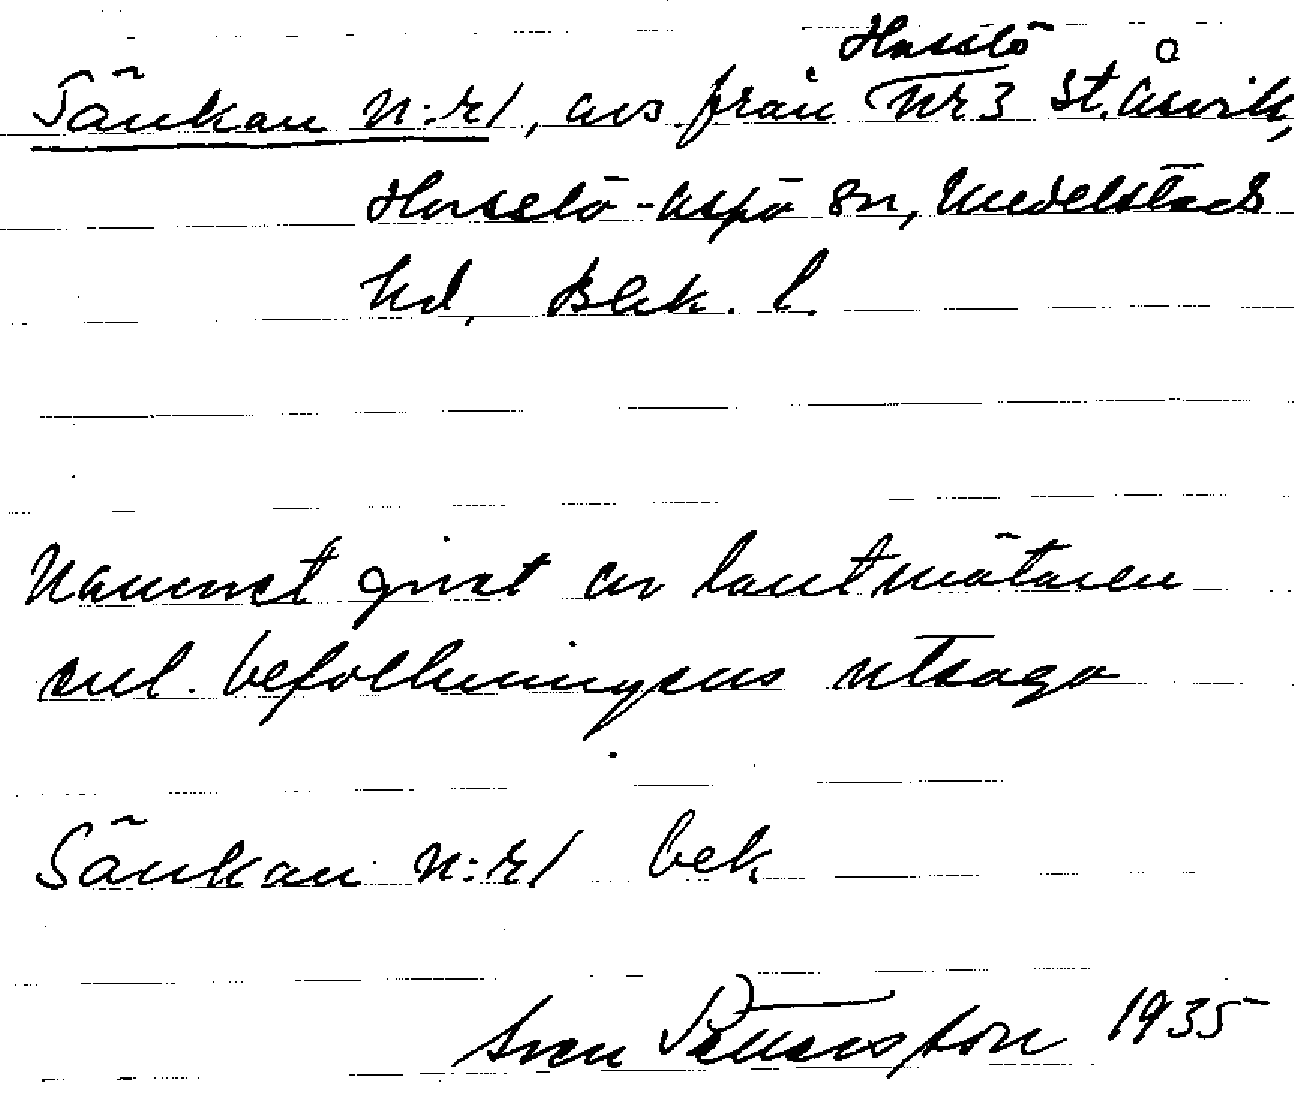 Hasslö
Sänkan n:r 1, avs från Nr 3 St. Åsvik,
Hasslö-Aspö sn, Medelstads
hd, Blek. l.
Namnet givet av lantmätaren
enl. befolkningens utsago
Sänkan n:r 1 bek.
Sven Pettersson 1935